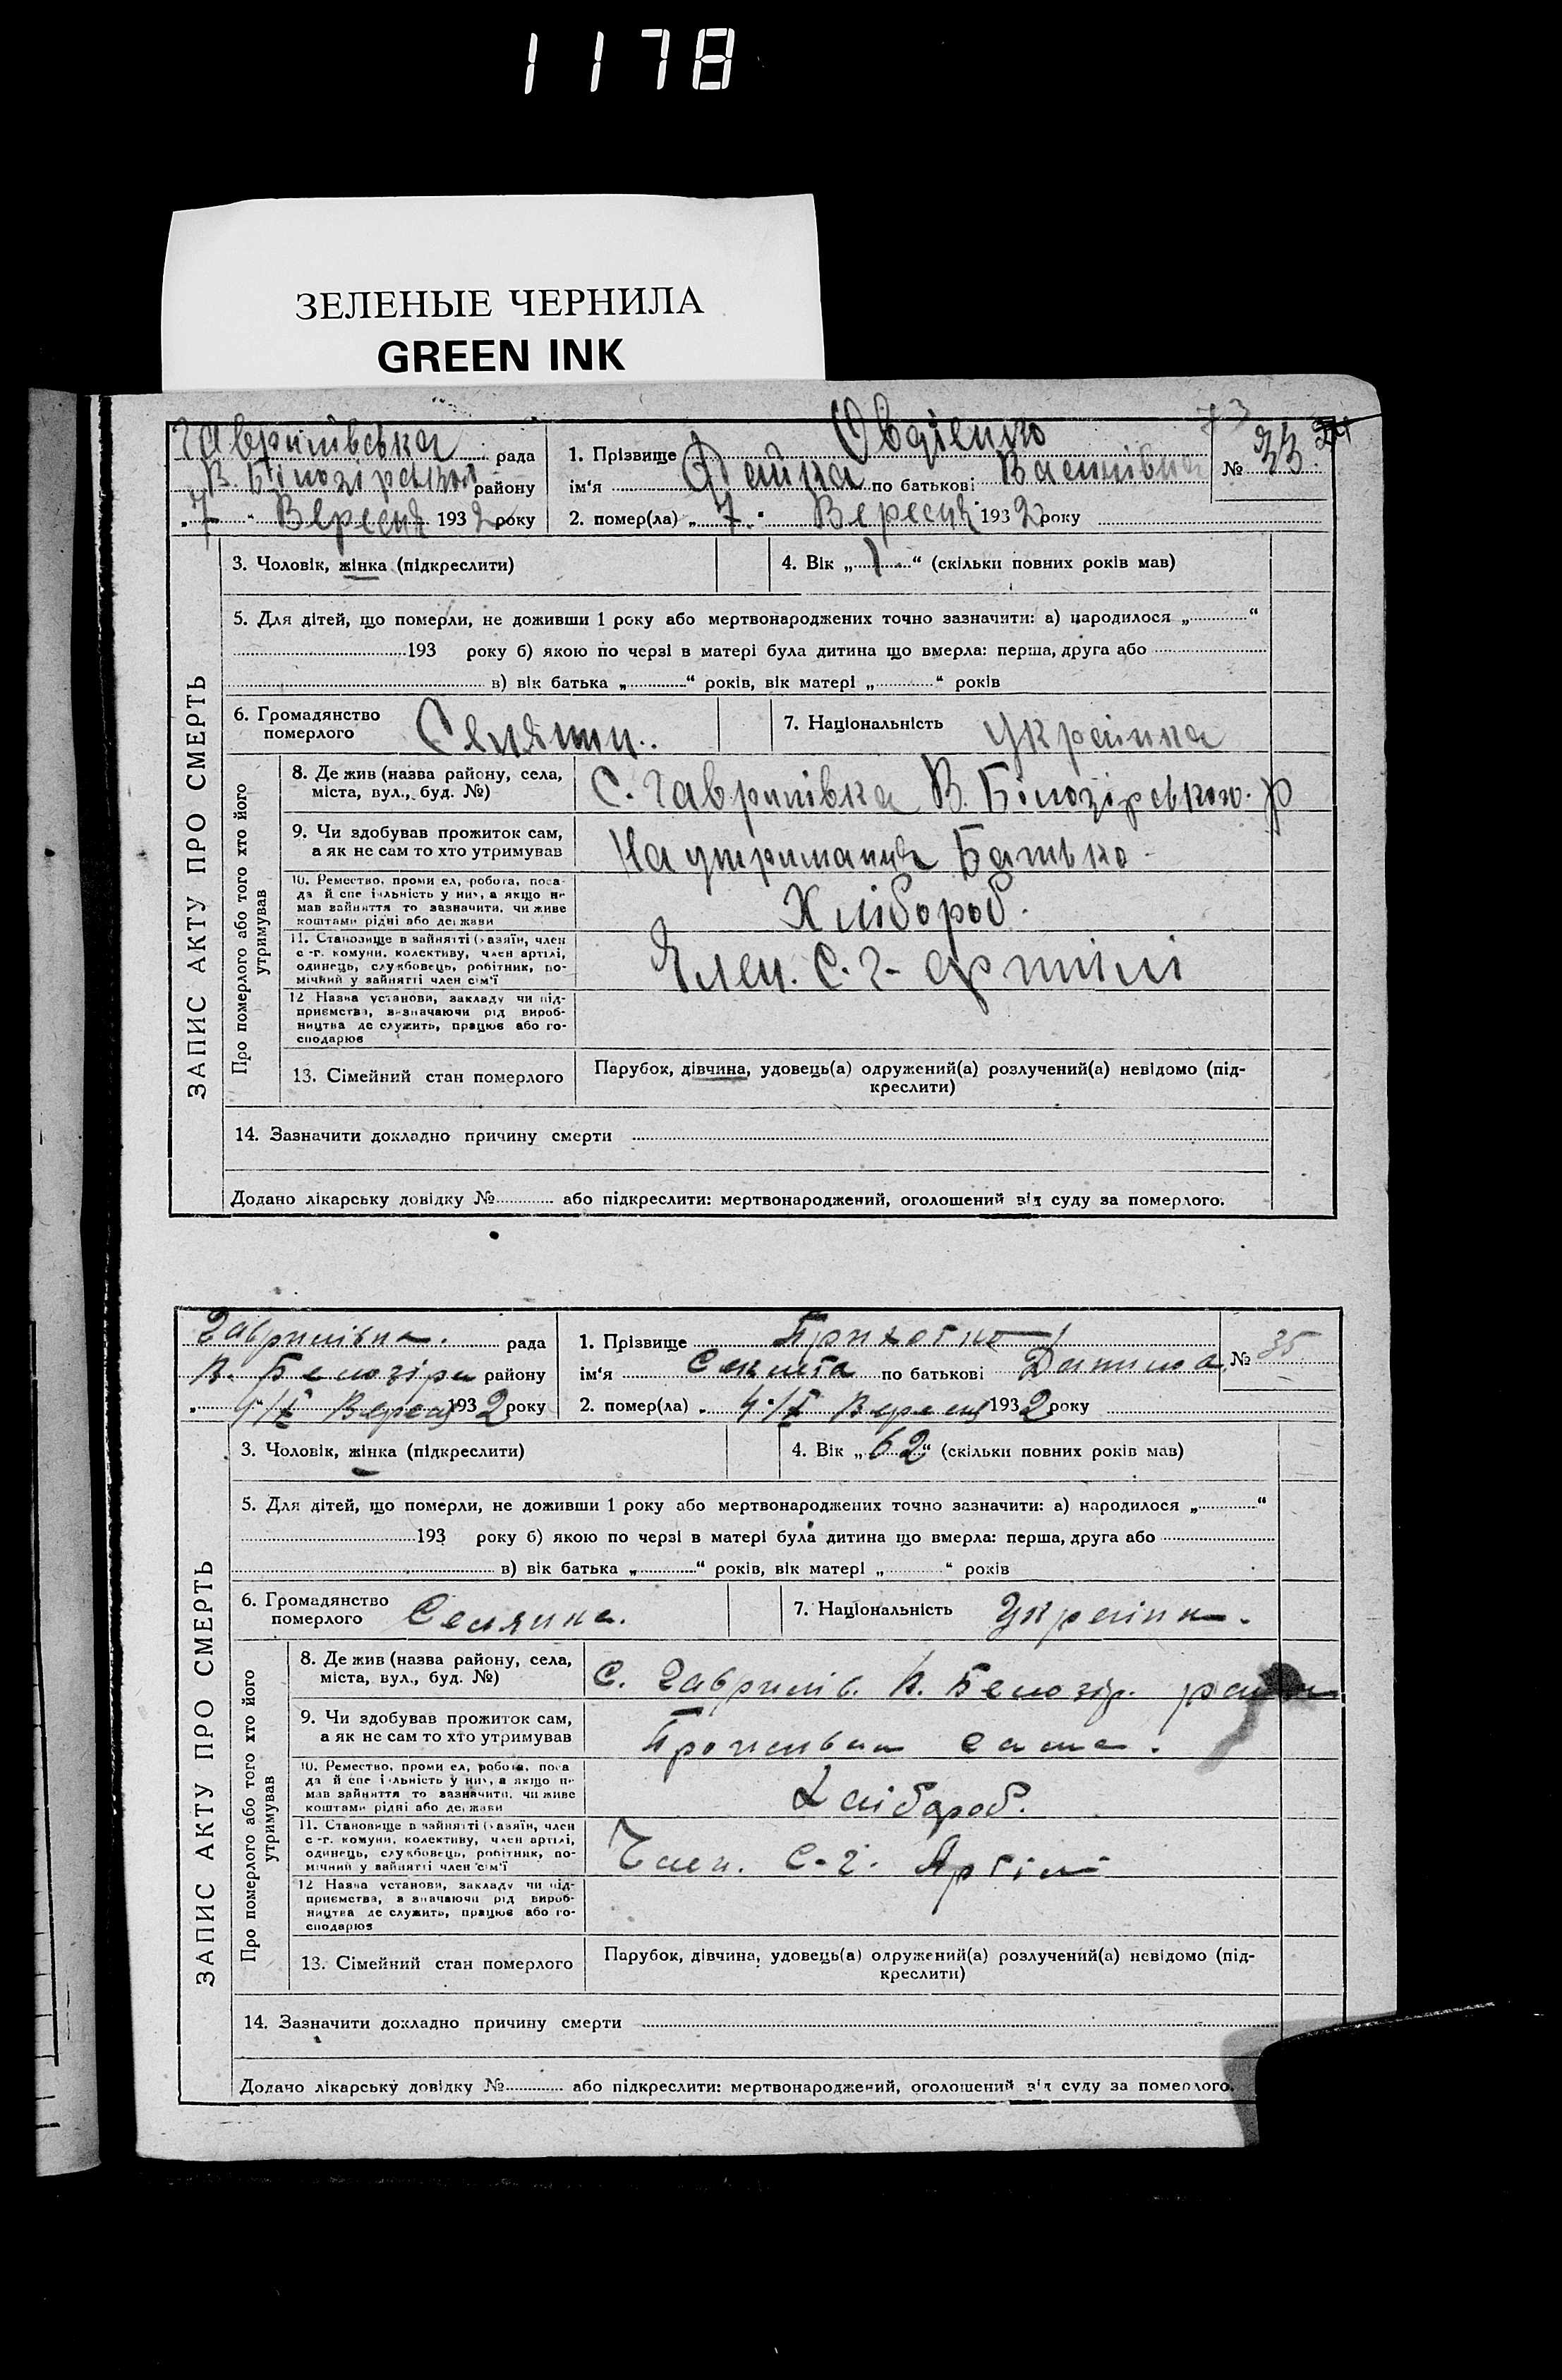 1178
ЗЕЛЕНЫЕ ЧЕРНИЛА
GREEN INK
73
Гаврилівська рада
В. Білозірського району
„7“ Вересня 1932 року
1. Прізвище Овдієнко
ім‘я по батькові Василівна
№ 33
2. помер(ла) „7“ Вересня 1932 року
3. Чоловік, жінка (підкреслити)
4. Вік „1“ (скільки повних років мав)
5. Для дітей, що померли, не доживши 1 року або мертвонароджених точно зазначити: а) народилося „ “
193 року б) якою по черзі в матері була дитина що вмерла: перша, друга або
в) вік батька „ “ років, вік матері „ “ років
6. Громадянство померлого Селяни
7. Національність Українка
ЗАПИС АКТУ ПРО СМЕРТЬ
Про померлого або того хто його утримував
8. Де жив (назва району, села, міста, вул., буд. №)
С. Гаврилівка В. Білозірського р
9. Чи здобував прожиток сам, а як не сам то хто утримував
На утримання Батько
10. Ремество, проми ел, робота, поса-
да й спе і льність у них, а якщо не
мав зайняття то зазначити, чи живе
коштами рідні або держави
Хлібороб.
11. Становище в зайнятті (хазяїн, член
с-г. комуни, колективу, член артілі,
одинець, службовець, робітник, по-
мічний у зайнятті член сім‘ї
Член. С.-г. артілі
12 Назва установи, закладу чи під-
приємства, визначаючи рід вироб-
ництва де служить, працює або го-
сподарює
13. Сімейний стан померлого
Парубок, дівчина, удовець(а) одружений(а) розлучений(а) невідомо (під-
креслити)
14. Зазначити докладно причину смерти
Додано лікарську довідку № або підкреслити: мертвонароджений, оголошений від суду за померлого.
Гаврилівка. рада
В. Белозірк району
4/ІХ Вересн 1932 року
1. Прізвище
ім‘я по батькові
№ 35
2. помер(ла) „ 4/ІХ Вересн 1932 року
3. Чоловік, жінка (підкреслити)
4. Вік „62“ (скільки повних років мав)
5. Для дітей, що померли, не доживши 1 року або мертвонароджених точно зазначити: а) народилося „ “
193 року б) якою по черзі в матері була дитина що вмерла: перша, друга або
в) вік батька „ “ років, вік матері „ “ років
6. Громадянство померлого Селянка.
7. Національність Українк.
ЗАПИС АКТУ ПРО СМЕРТЬ
Про померлого або того хто його утримував
8. Де жив (назва району, села, міста, вул., буд. №)
С. Гаврилів. В. Белозір. район
9. Чи здобував прожиток сам, а як не сам то хто утримував
сама.
10. Ремество, проми ел, робота, поса
да й спе і льність у них, а якщо не
мав зайняття то зазначити, чи живе
коштами рідні або держави
Хлібороб.
11. Становище в зайнятті (хазяїн, член
с-г. комуни, колективу, член артілі,
одинець, службовець, робітник, по-
мічний у зайнятті член сім‘ї
Член. С-г. Артілі
12 Назва установи, закладу чи під-
приємства, визначаючи рід вироб-
ництва де служить, працює або го-
сподарює
13. Сімейний стан померлого
Парубок, дівчина, удовець(а) одружений(а) розлучений(а) невідомо (під-
креслити)
14. Зазначити докладно причину смерти
Додано лікарську довідку № або підкреслити: мертвонароджений, оголошений від суду за померлого.